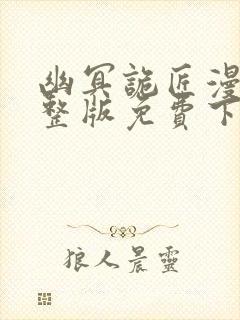 幽冥詭匠漫
整版免費下
狼人晨靈